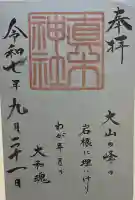 奉拝
大山の峰の
岩根に埋にけり
わが年月の
大和魂
真木
神社
令和七年九月二十一日